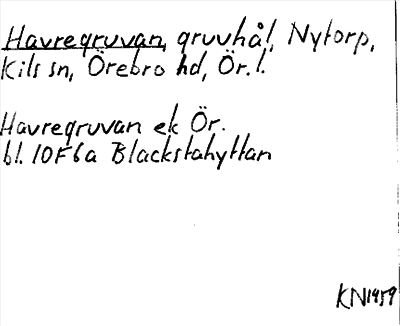 Havregruvan, gruvhål, Nytorp,
Kils sn, Örebro hd, Ör. l.
Havregruvan ek Ör.
bl. 10F6a Blackstahyttan
KN1959